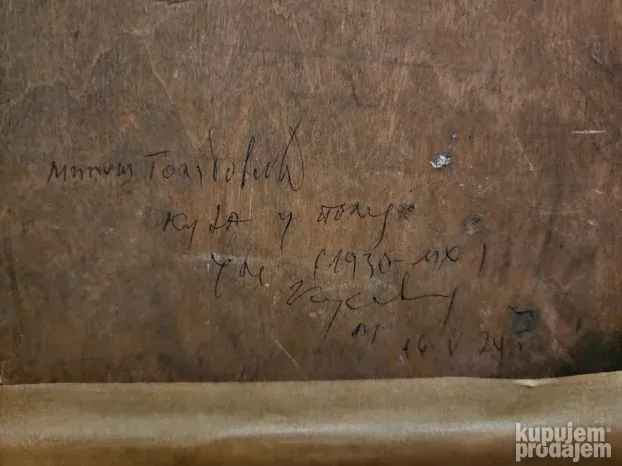 Милош Голубовић
Кућа у пољу
уље (1930-их)
М
16 V 24
kupujem
prodajem